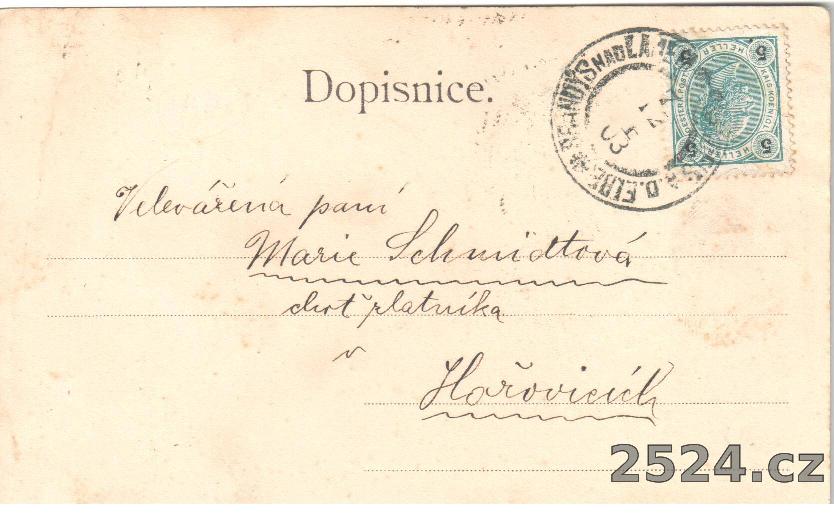 Dopisnice.
BRANDÝS NAD LAB
A.D. ELBE
03
5 HELLER 5
5 HELLER 5
Velevážená paní
Marie Schmidtová
choť zlatníka
v
Hořovicích
2524.cz